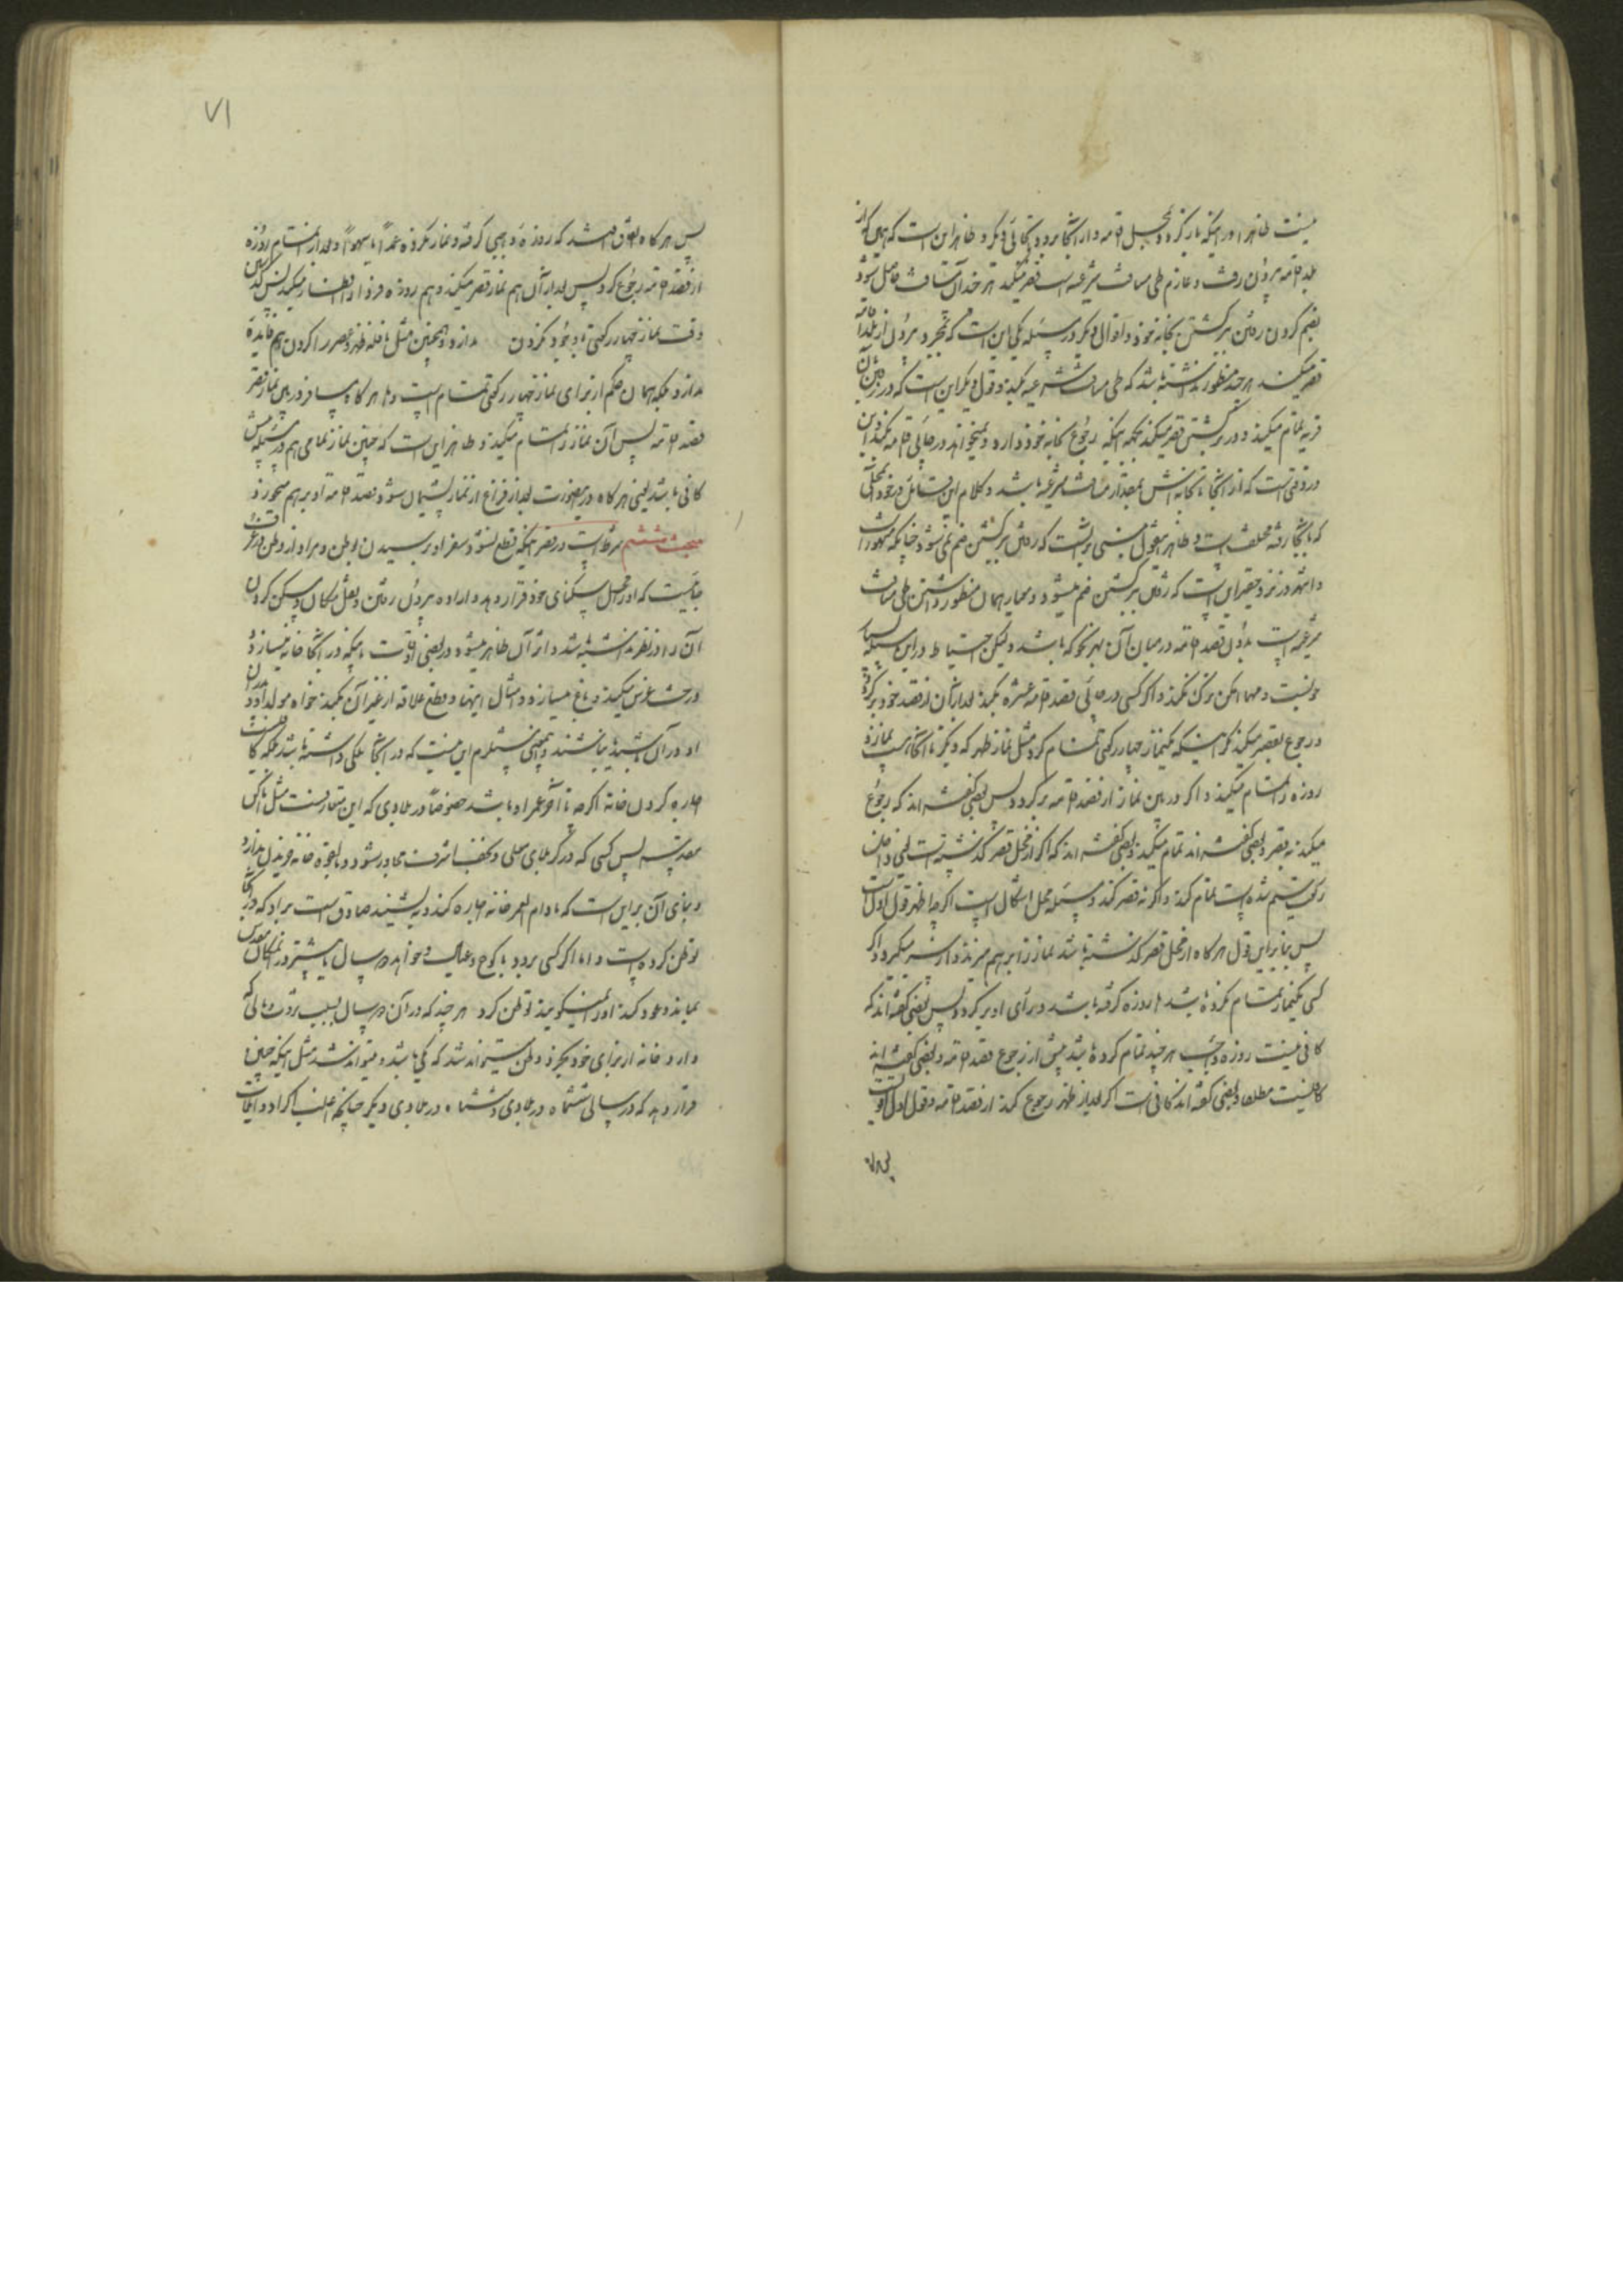 نیست ظاهرا و در اینکه باز کرد بمحل اقامه و از آنجا برود بجائی دیگر و ظاهر این است که همین که از
بلد اقامه بیرون رفت و عازم طی مسافت شرعیه است قصر میکند هر چند آن مسافت حاصل شود
بضم کردن رفتن برگشتن بخانه خود و اقوال دیگر در مسئله یکی این است که بمجرد بیرون از بلد اقامه
قصر میکند هر چند منظور نداشته باشد که طی مسافت شرعیه کند و قول دیگر این است که در رفتن بآن
قریه تمام میکند و در برگشتن قصر میکند بجهة اینکه رجوع بخانه خود دارد و نمیخواهد در جائی اقامه کند و این
در وقتی است که از آنجا تا خانه اش بمقدار مسافت شرعیه باشد و کلام این قائل در خود محلی
که بآنجا رفته مختلف است و ظاهر این قول مبنی بر آنست که رفتن ببرگشتن ضم نمی شود چنانکه مشهور است
و اشهر در نزد حقیر این است که رفتن ببرگشتن ضم میشود و معیار همان منظور داشتن طی مسافت
شرعیه است بدون قصد اقامه در میان آن بهر نحو که باشد و لیکن احتیاط در این مسئله بسیار
خوبست و مهما امکن ترک نکند و اگر کسی در جائی قصد اقامه عشره بکند بعد از آن از قصد خود برگردد
رجوع بقصر میکند مگر اینکه یکنماز چهار رکعتی تمام کرده مثل نماز ظهر که دیگر تا آنجا است نماز و
روزه را تمام میکند و اگر در بین نماز از قصد اقامه برگردد پس بعضی گفته اند که رجوع
میکند به قصر و بعضی گفته اند تمام میکند و بعضی گفته اند که اگر از محل قصر گذشته است یعنی داخل
رکعت سیم شده است تمام کند و اگر نه قصر کند و مسئله محل اشکال است اگر چه اظهر قول اول است
پس بنا بر این قول هر گاه از محل قصر گذشته باشد نماز را بر هم میزند و از سر میگیرد و اگر
کسی یکنماز تمام نکرده باشد اما روزه گرفته باشد و رأی او برگردد پس بعضی گفته اند که
کافی نیست روزه واجب هر چند تمام کرده باشد پیش از رجوع قصد اقامه و بعضی گفته اند
کافیست مطلقا و بعضی گفته اند کافی است اگر بعد از ظهر رجوع کند از قصد اقامه و قول اول اقوی است
پس هر گاه
۷۱
پس هر گاه اتفاق افتد که روزه واجبی گرفته و نماز نکرده عمداً یا سهواً و بعد از تمام روزه
از قصد اقامه رجوع کرد پس بعد از آن هم نماز قصر میکند و هم روزه فردا را افطار میکند و گذشتن
وقت نماز چهار رکعتی با وجود نکردن ندارد و همچنین مثل نافله ظهر و عصر را کردن هم فایده
ندارد بلکه همان حکم از برای نماز چهار رکعتی تمام است و اما هر گاه مسافر در بین نماز قصر
قصد اقامه پس آن نماز را تمام میکند و ظاهر این است که چنین نماز تمامی هم در مسئله پیش
کافی باشد یعنی هر گاه در این صورت بعد از فراغ از نماز پشیمان شود و قصد اقامه او بر هم میخورد
مبحث ششم شرط است در قصر اینکه قطع نشود سفر او برسیدن بوطن و مراد از وطن در عرف
جائیست که او را محل سکنای خود قرار دهد و اراده بیرون رفتن و نقل مکان و مسکن کردن
آن را در نظر نداشته باشد و اثر آن ظاهر میشود در بعضی اوقات باینکه در آنجا خانه میسازد و
درخت غرس میکند و باغ میسازد و امثال اینها و قطع علاقه از غیر آن میکند خواه مولد او و پدران
او در آن باشد یا نباشد و این معنی مستلزم این نیست که در آنجا ملکی داشته باشد بلکه کافی است
اجاره کردن خانه اگر چه تا آخر عمر او باشد خصوصاً در بلادی که این متعارفست مثل اماکن
مقدسه پس کسی که در کربلای معلی و نجف اشرف مجاور شود و بالقوه خانه خریدن ندارد
و بنای آن بر این است که مادام العمر خانه اجاره کند و بنشیند صادق است بر او که در آنجا
توطن کرده است و اما اگر کسی برود با کوچ و عیال و خواهد ده سال یا بیشتر در آن مکان مقدس
بماند و عود کند او را نمیگویند توطن کرد هر چند که در آن ده سال بسبب ثروت مالی که
دارد خانه از برای خود بخرد و وطن میتواند شد که یکی باشد و میتواند شد مثل اینکه چنین
قرار دهد که در سالی ششماه در بلادی و ششماه در بلادی دیگر چنانچه اغلب اکراد و ایلات